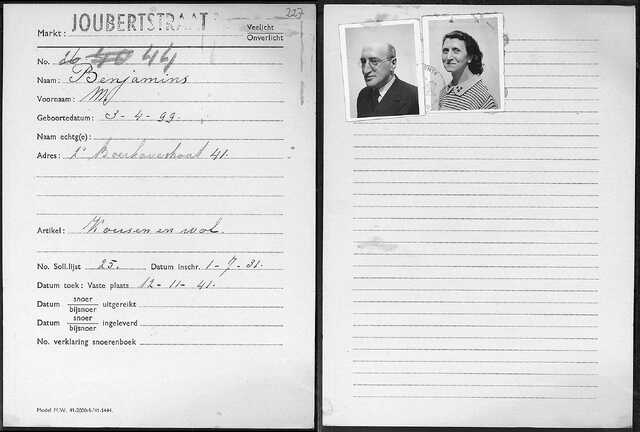 227
Markt: JOUBERTSTRAAT Veelicht
Onverlicht
No. 26 40 44
Naam: Benjamins
Voornaam: M
Geboortedatum: 3-4-99.
Naam echtg(e):
Adres: 1e Boerhavestraat 41.
Artikel: Kousen en wol.
No. Soll.lijst 25. Datum inschr. 1-7-31.
Datum toek: Vaste plaats 12-11-41.
Datum snoer/bijsnoer uitgereikt
Datum snoer/bijsnoer ingeleverd
No. verklaring snoerenboek